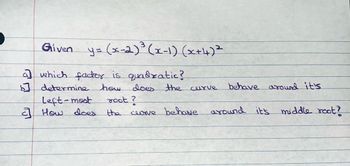 Given y = (x-2)³ (x-1) (x+4)²
a] which factor is quadratic?
b] determine how does the curve behave around it's
left-most root?
c] How does the curve behave around it's middle root?